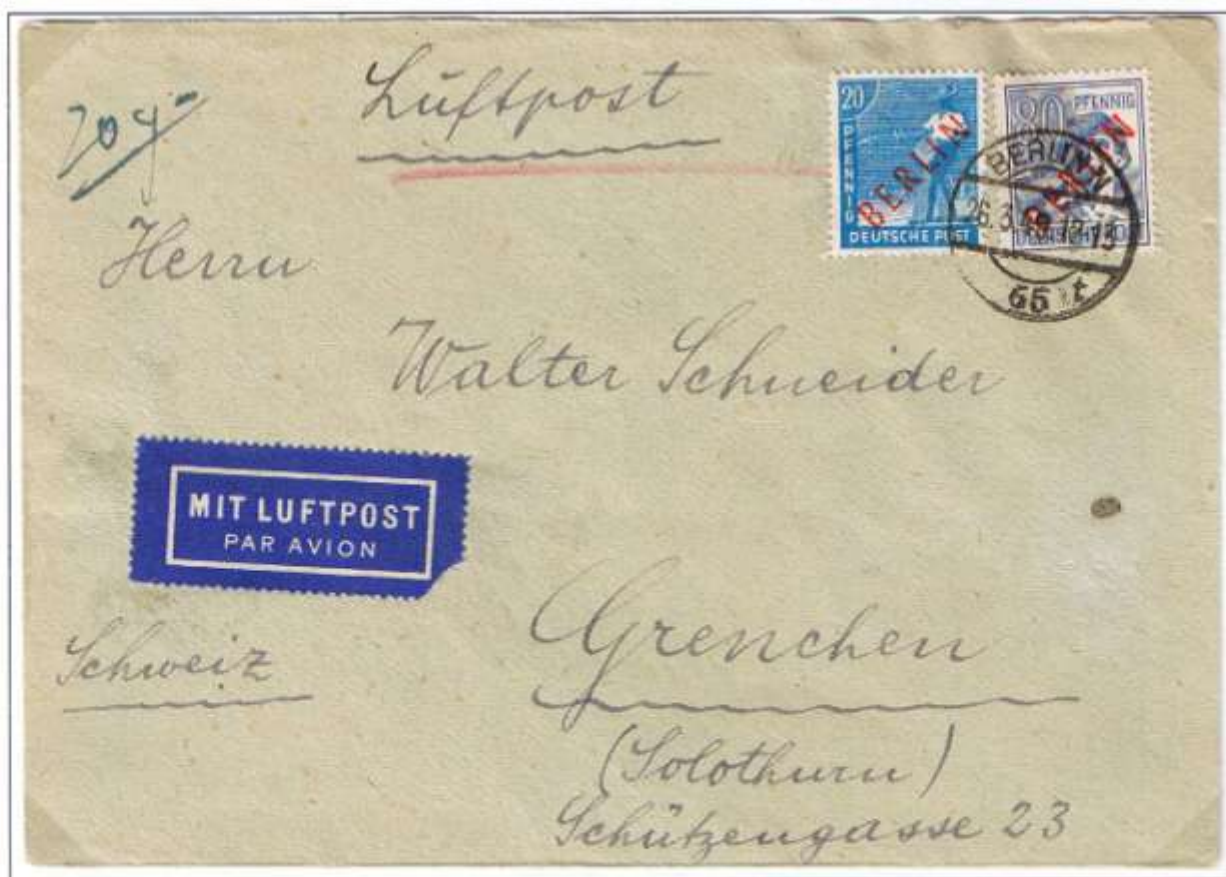 20g
Luftpost
20
PFENNIG
BERLIN
DEUTSCHE POST
80 PFENNIG
BERLIN
DEUTSCHE POST
BERLIN N
26.3.49.12-13
65 t
Herrn
Walter Schneider
MIT LUFTPOST
PAR AVION
Schweiz
Grenchen
(Solothurn)
Schützengasse 23